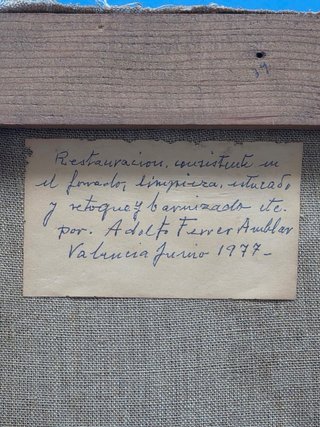 34
Restauracion, consistente en
el forrado, limpieza, estucado
y retoque y barnizado etc.
por. Adolfo Ferrer Amblar
Valencia Junio 1977-